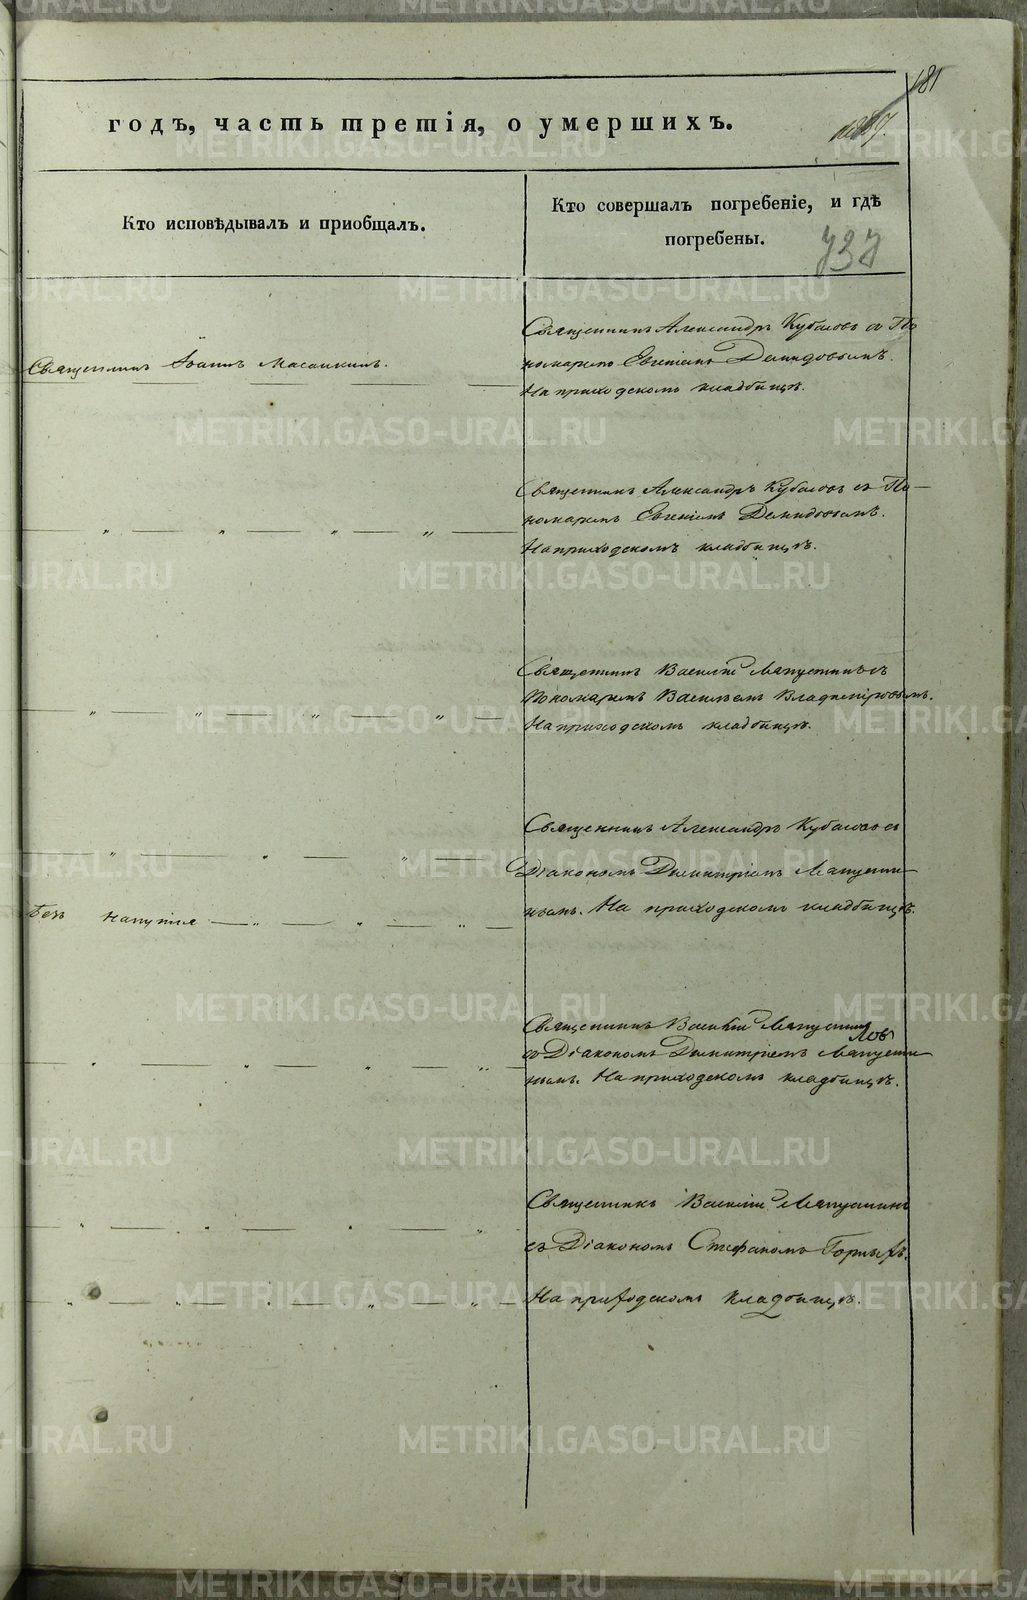 181
годъ, часть третія, о умершихъ.
Кто исповѣдывалъ и приобщалъ.
Кто совершалъ погребеніе, и гдѣ
погребены.
737
Священникъ Александръ Кубасовъ съ По
номаремъ Евгеніемъ Демидовымъ.
На приходскомъ кладбищѣ.
Священникъ Іоаннъ
Священникъ Александръ Кубасовъ съ По-
номаремъ Евгеніемъ Демидовымъ.
На приходскомъ кладбищѣ.
Священникъ Василій Ляпустинъ съ
Пономаремъ Васильемъ Владиміровымъ.
На приходскомъ кладбищѣ.
Священникъ Александръ Кубасовъ съ
Діакономъ Димитріемъ Ляпусти-
нымъ. На приходскомъ кладбищѣ.
Безъ напутія
Священникъ Василій Ляпустинъ
съ Діакономъ Димитріемъ Ляпусти-
нымъ. На приходскомъ кладбищѣ.
Священникъ Василій Ляпустинъ
съ Діакономъ Стефаномъ Горныхъ.
На приходскомъ кладбищѣ.
METRIKI.GASO-URAL.RU